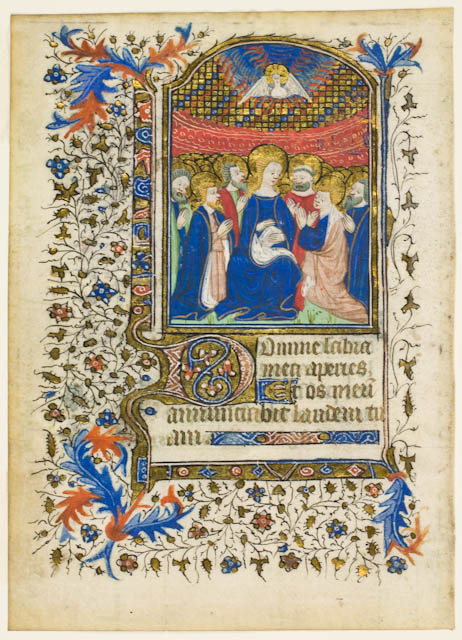 Domine labia
mea aperies
Et os meū
annunciabit laudem tu
am